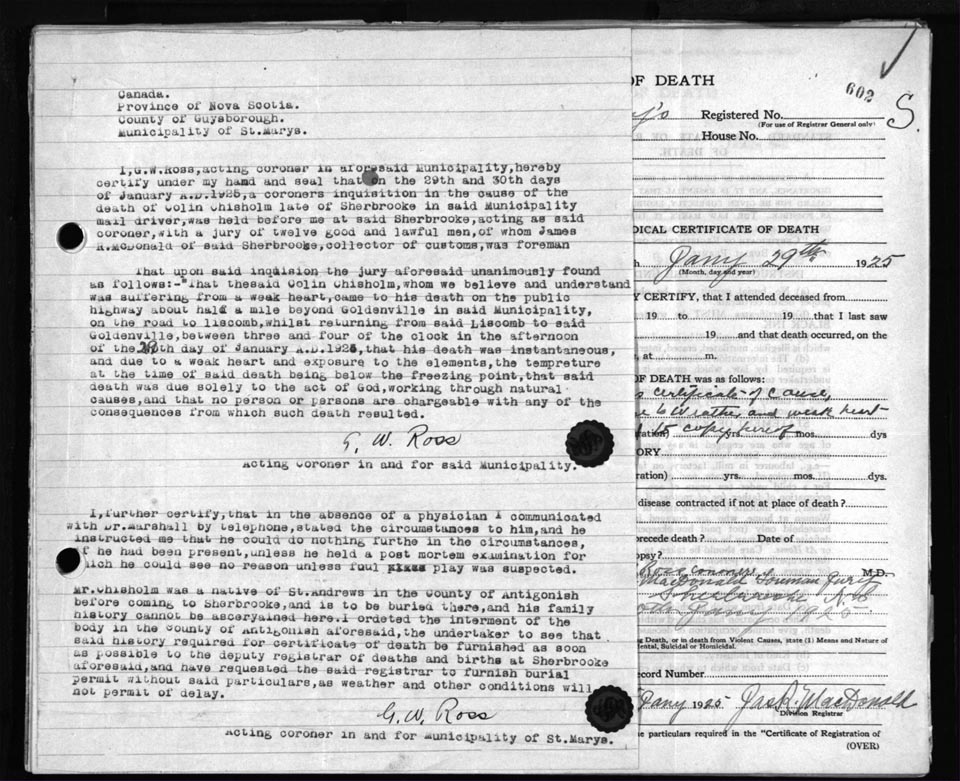 Canada.
Province of Nova Scotia.
County of Guysborough.
Municipality of St.Marys.
I,G.W.Ross,acting coroner in aforesaid Municipality,hereby
certify under my hand and seal that on the 29th and 30th days
of January A.D.1925,a coroners inquisition in the cause of the
death of Colin Chisholm late of Sherbrooke in said Municipality
mail driver,was held before me at said Sherbrooke,acting as said
coroner,with a jury of twelve good and lawful men,of whom James
R.McDonald of said Sherbrooke,collector of customs,was foreman
That upon said inquision the jury aforesaid unanimously found
as follows:-"That thesaid Colin Chisholm,whom we believe and understand
was suffering from a weak heart,came to his death on the public
highway about half a mile beyond Goldenville in said Municipality,
on the road to Liscomb,whilst returning from said Liscomb to said
Goldenville,between three and four of the clock in the afternoon
of the 28th day of January A.D.1925,that his death was instantaneous,
and due to a weak heart and exposure to the elements,the tempreture
at the time of said death being below the freezing point,that said
death was due solely to the act of God,working through natural
causes,and that no person or persons are chargeable with any of the
consequences from which such death resulted.
G. W. Ross
Acting Coroner in and for said Municipality.
I,further certify,that in the absence of a physician I communicated
with Dr.Marshall by telephone,stated the circumstances to him,and he
instructed me that he could do nothing furthe in the circumstances,
if he had been present,unless he held a post mortem examination for
which he could see no reason unless foul play was suspected.
Mr.Chisholm was a native of St.Andrews in the County of Antigonish
before coming to Sherbrooke,and is to be buried there,and his family
history cannot be asceryained here.I ordeted the interment of the
body in the County of Antigonish aforesaid,the undertaker to see that
said history required for certificate of death be furnished as soon
as possible to the deputy registrar of deaths and births at Sherbrooke
aforesaid,and have requested the said registrar to furnish burial
permit without said particulars,as weather and other conditions will
not permit of delay.
G. W. Ross
Acting coroner in and for Municipality of St.Marys.
OF DEATH
602
S.
Registered No.
(For use of Registrar General only)
House No.
DICAL CERTIFICATE OF DEATH
Jany 29th 1925
(Month, day and year)
Y CERTIFY, that I attended deceased from
19 to 19 that I last saw
19 and that death occurred, on the
, at m.
OF DEATH was as follows:
certificate of cause,
to Weather, and weak heart
copy hereof
ration) yrs. mos. dys
ORY
ration) yrs. mos. dys.
disease contracted if not at place of death?
precede death? Date of
opsy?
Ross Coroner M.D.
MacDonald Foreman Jury
Sherbrooke N S
Jany 1925
ng Death, or in death from Violent Causes, state (1) Means and Nature of
dental, Suicidal or Homicidal.
ecord Number
Jany 1925 Jas R. MacDonald
Division Registrar
e particulars required in the "Certificate of Registration of
(OVER)